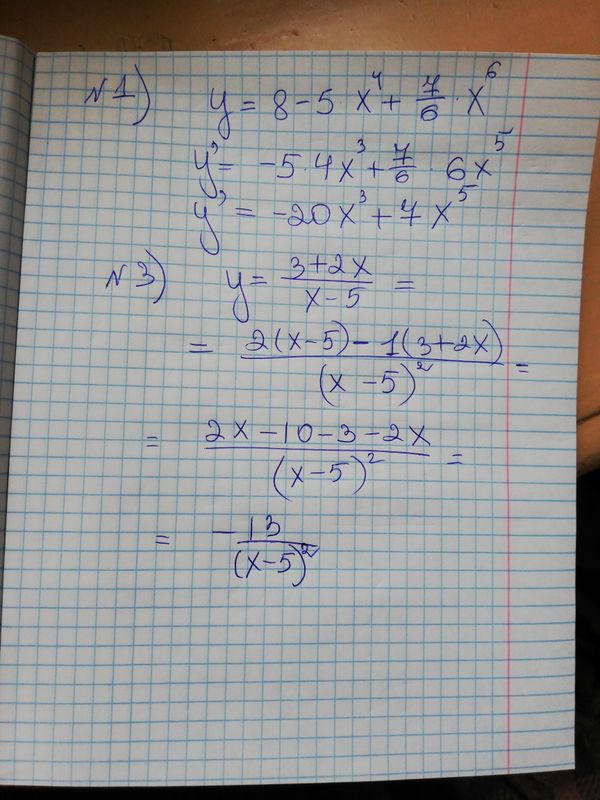 №1) y = 8 - 5 · x⁴ + 7/6 · x⁶
y' = -5 · 4x³ + 7/6 · 6x⁵
y' = -20x³ + 7x⁵
№3) y = (3+2x)/(x-5) =
= (2(x-5) - 1(3+2x))/(x-5)² =
= (2x-10-3-2x)/(x-5)² =
= -13/(x-5)²